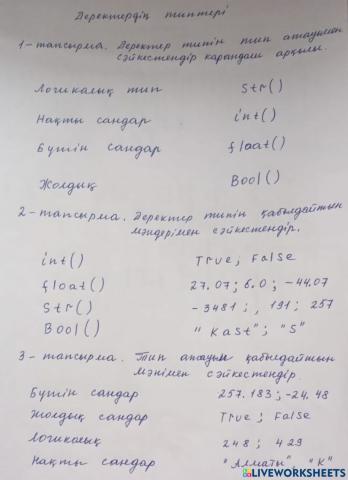 Деректердің типтері
1-тапсырма. Деректер типін тип атауымен
сәйкестендір карандаш арқылы.
Логикалық тип Str()
Нақты сандар int()
Бүтін сандар float()
Жолдық Bool()
2-тапсырма. Деректер типін қабылдайтын
мәндерімен сәйкестендір.
int() True; False
float() 27.07; 6.0; -44.07
Str() -3481; , 191; 257
Bool() "Kast"; "S"
3-тапсырма. Тип атауын қабылдайтын
мәнімен сәйкестендір.
Бүтін сандар 257.183; -24.48
Жолдық сандар True; False
Логикалық 248; 429
Нақты сандар "Алматы" "К"
LIVEWORKSHEETS